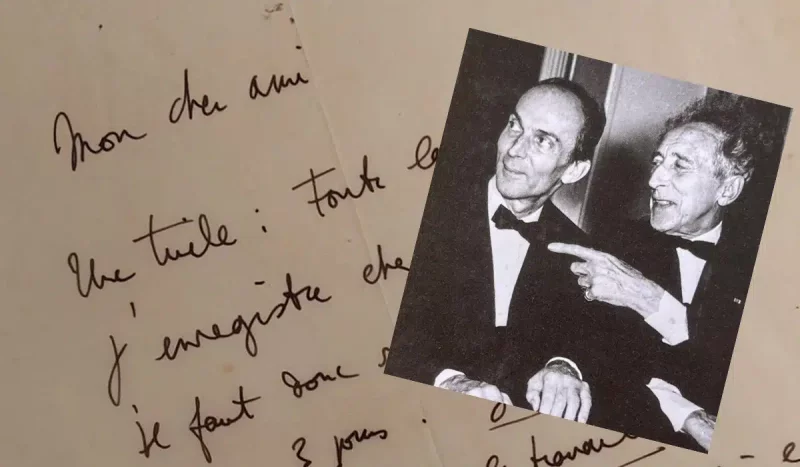 Mon cher ami
Une tuile : Toute
j'enregistre che
je faut donc
3 jours.